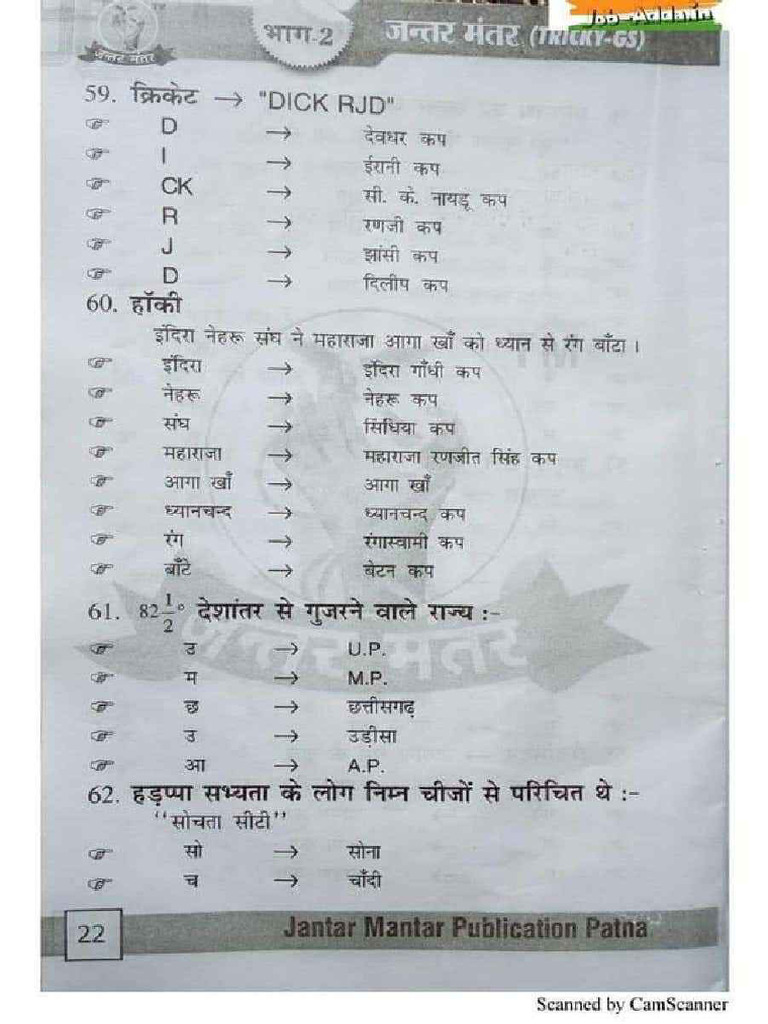 Job-Adda.in
जन्तर मंतर
भाग-2
जन्तर मंतर (TRICKY-GS)
59. क्रिकेट → "DICK RJD"
☞ D → देवधर कप
☞ I → ईरानी कप
☞ CK → सी. के. नायडू कप
☞ R → रणजी कप
☞ J → झांसी कप
☞ D → दिलीप कप
60. हॉकी
इंदिरा नेहरू संघ ने महाराजा आगा खाँ को ध्यान से रंग बाँटा ।
☞ इंदिरा → इंदिरा गाँधी कप
☞ नेहरू → नेहरू कप
☞ संघ → सिंधिया कप
☞ महाराजा → महाराजा रणजीत सिंह कप
☞ आगा खाँ → आगा खाँ
☞ ध्यानचन्द → ध्यानचन्द कप
☞ रंग → रंगास्वामी कप
☞ बाँटे → बेटन कप
61. 82 1/2° देशांतर से गुजरने वाले राज्य :-
☞ उ → U.P.
☞ म → M.P.
☞ छ → छत्तीसगढ़
☞ उ → उड़ीसा
☞ आ → A.P.
जन्तर मंतर
62. हड़प्पा सभ्यता के लोग निम्न चीजों से परिचित थे :-
"सोचता सीटी"
☞ सो → सोना
☞ च → चाँदी
22
Jantar Mantar Publication Patna
Scanned by CamScanner